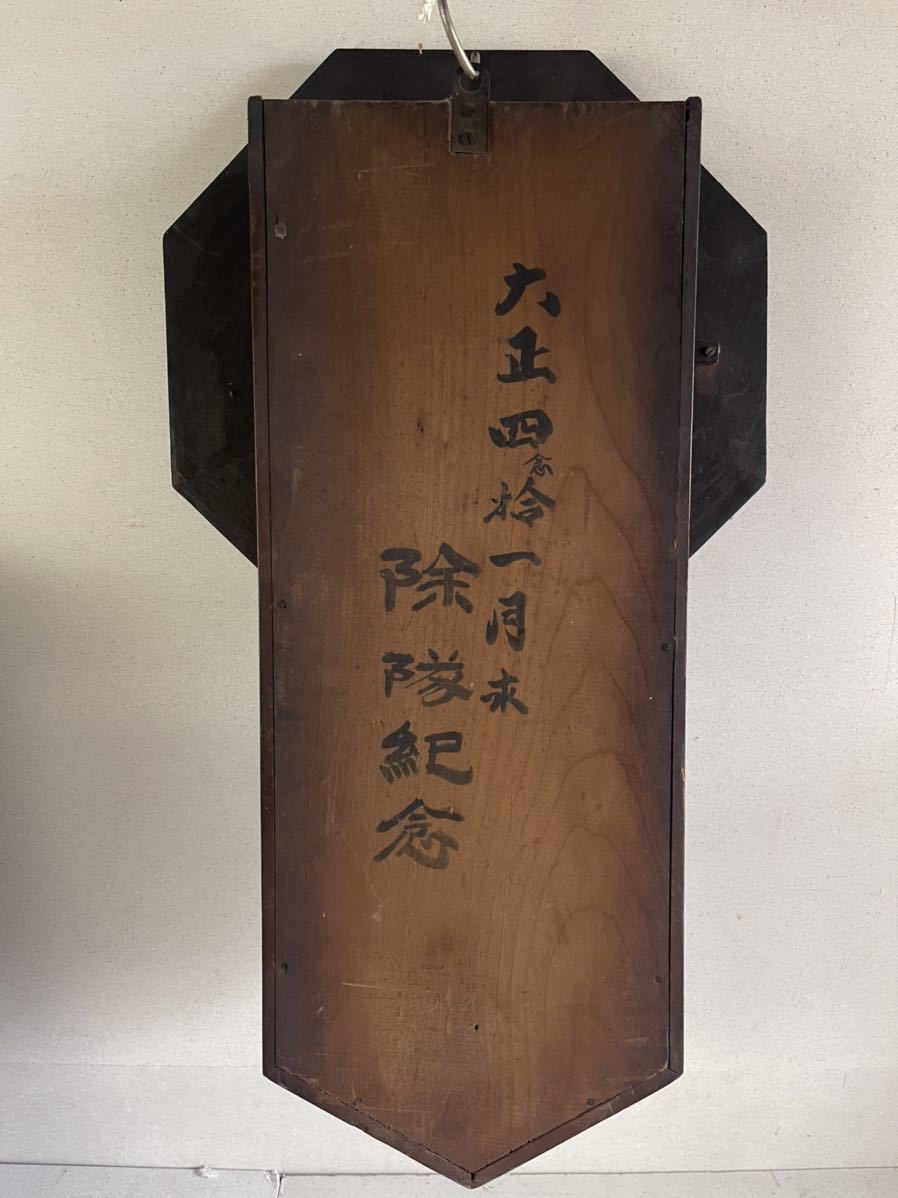 大正四年拾一月末
除隊紀念